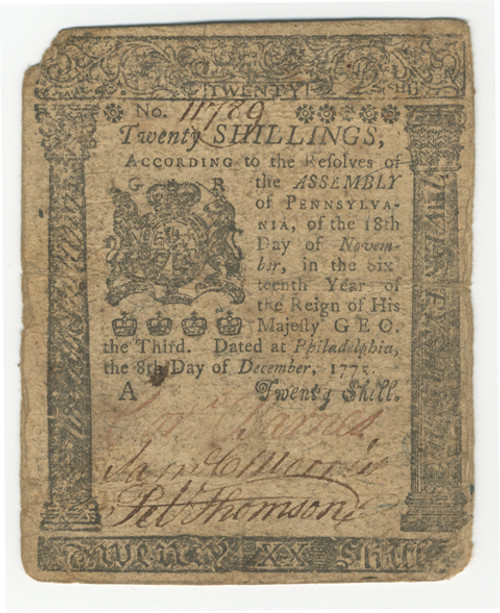 TWENTY
No. 11789
Twenty SHILLINGS,
ACCORDING to the Resolves of
G R the ASSEMBLY
of PENNSYLVA-
NIA, of the 18th
Day of Novem-
ber, in the Six
teenth Year of
the Reign of His
Majesty GEO.
the Third. Dated at Philadelphia,
the 8th Day of December, 1775.
A Twenty Shill.
Barnes
Sam C Morris
Pet Thomson
Twenty XX Shill